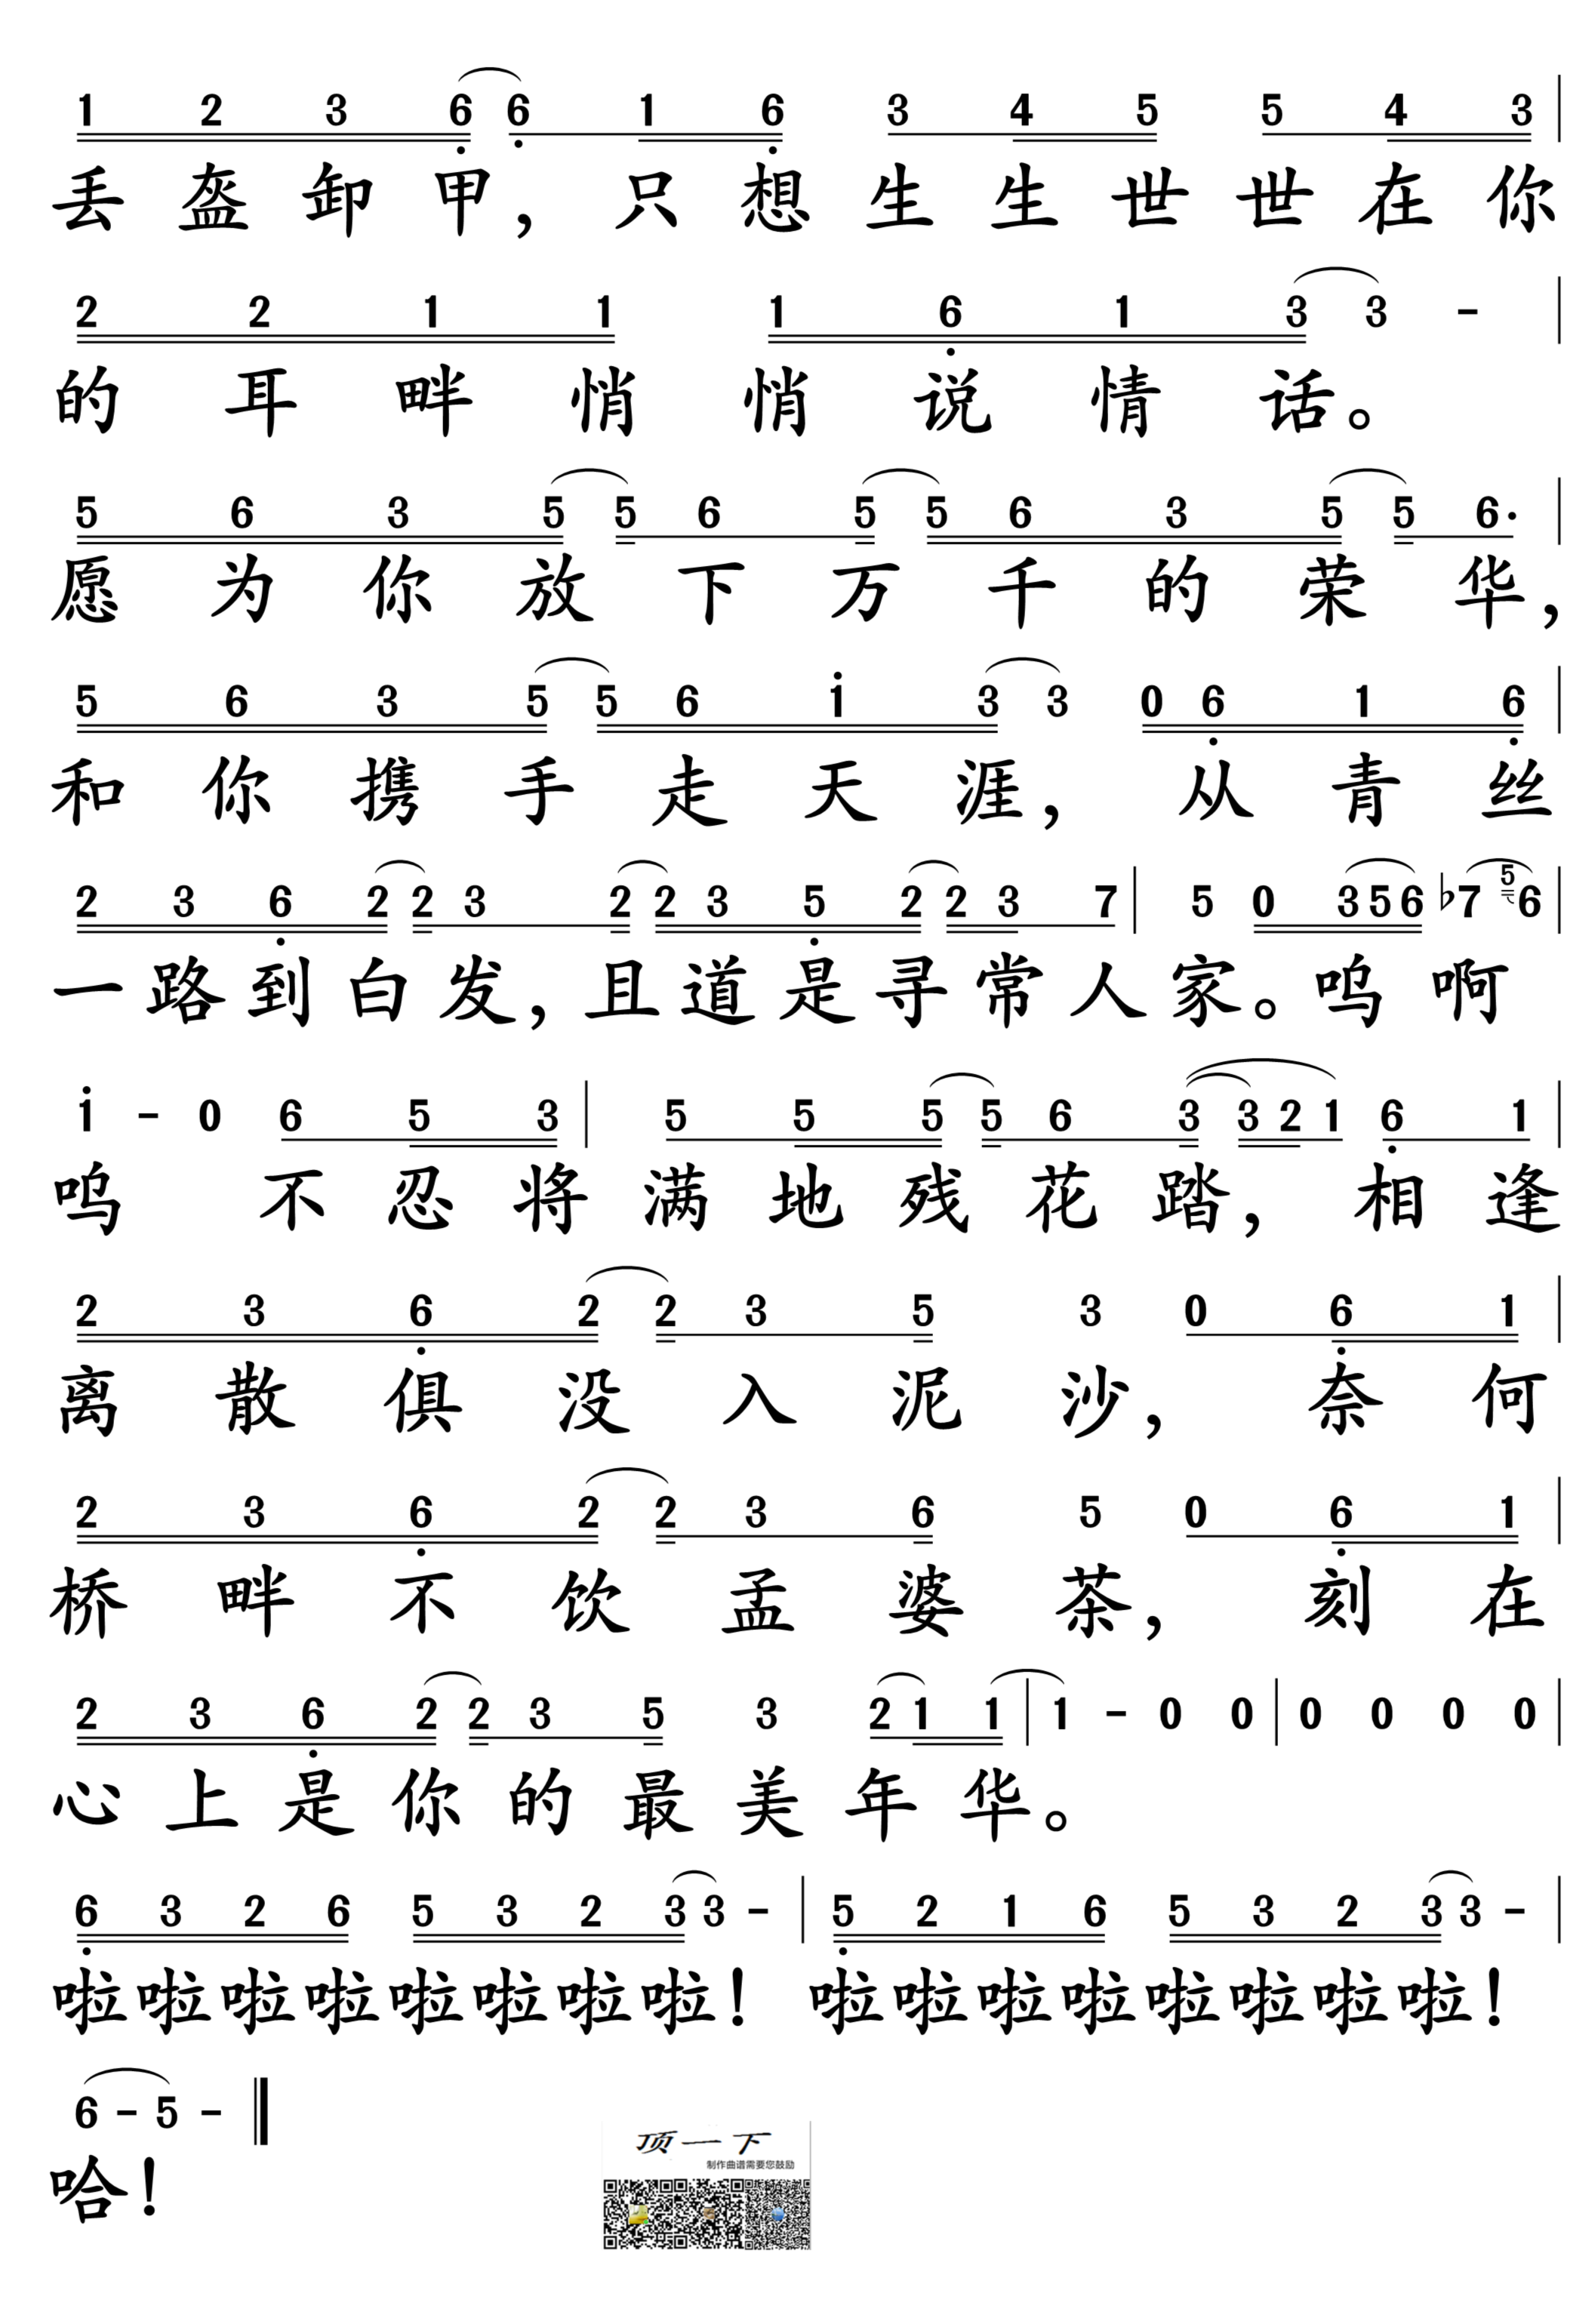 1 2 3 6 6 1 6 3 4 5 5 4 3
丢盔卸甲，只想生生世世在你
2 2 1 1 1 6 1 3 3 -
的耳畔悄悄说情话。
5 6 3 5 5 6 5 5 6 3 5 5 6·
愿为你放下万千的荣华，
5 6 3 5 5 6 i 3 3 0 6 1 6
和你携手走天涯，从青丝
2 3 6 2 2 3 2 2 3 5 2 2 3 7 | 5 0 3 5 6 ♭7 5 6
一路到白发，且道是寻常人家。呜啊
i - 0 6 5 3 | 5 5 5 5 6 3 3 2 1 6 1
呜 不忍将满地残花踏，相逢
2 3 6 2 2 3 5 3 0 6 1
离散俱没入泥沙，奈何
2 3 6 2 2 3 6 5 0 6 1
桥畔不饮孟婆茶，刻在
2 3 6 2 2 3 5 3 2 1 1 | 1 - 0 0 | 0 0 0 0
心上是你的最美年华。
6 3 2 6 5 3 2 3 3 - | 5 2 1 6 5 3 2 3 3 -
啦啦啦啦啦啦啦啦！啦啦啦啦啦啦啦啦！
6 - 5 -
哈！
顶一下
制作曲谱需要您鼓励